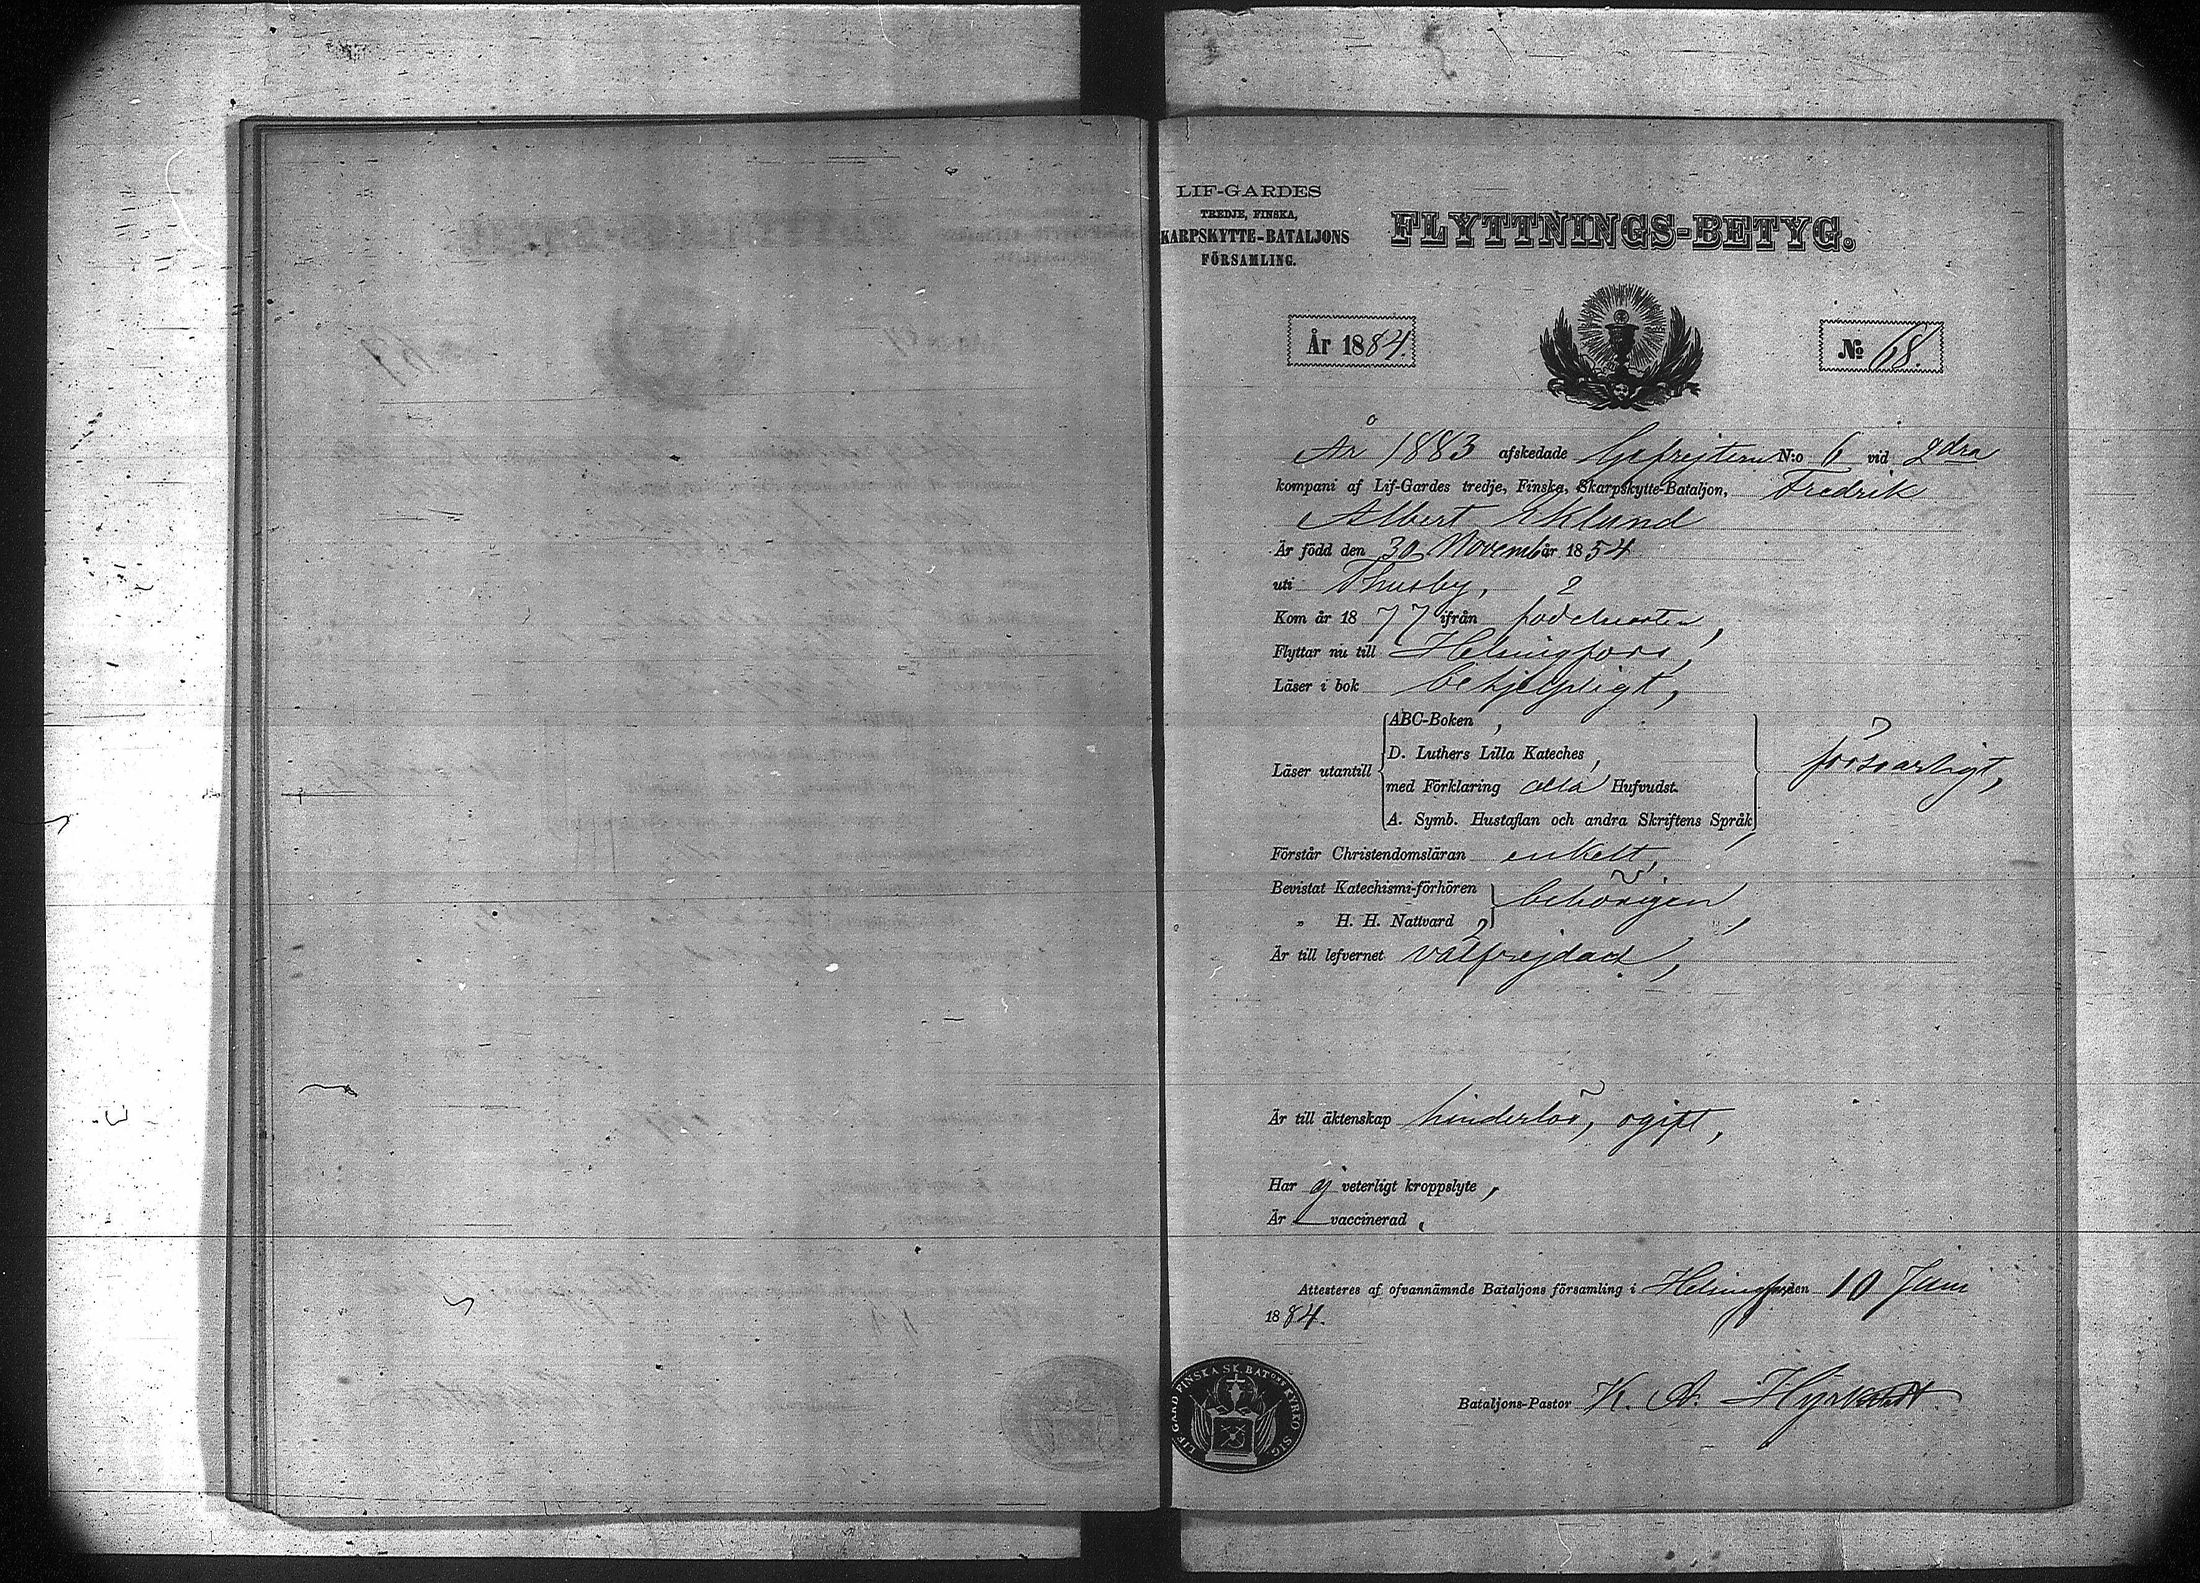 LIF-GARDES
TREDJE, FINSKA,
SKARPSKYTTE-BATALJONS
FÖRSAMLING.
FLYTTNINGS-BETYG.
År 1884.
No 68.
År 1883 afskedade Gefrejtern N:o 6 vid 2dra
kompani af Lif-Gardes tredje, Finska, Skarpskytte-Bataljon, Fredrik
Albert Eklund
Är född den 30 Novembr år 1854
uti Thusby,
Kom år 1877 ifrån födelseorten,
Flyttar nu till Helsingfors,
Läser i bok behjelpligt,
Läser utantill
ABC-Boken,
D. Luthers Lilla Kateches,
med Förklaring alla Hufvudst.
A. Symb. Hustaflan och andra Skriftens Språk,
försvarligt,
Förstår Christendomsläran enkelt,
Bevistat Katechismi-förhören
„ H. H. Nattvard
behörigen,
Är till lefvernet välfrejdad,
Är till äktenskap hinderlös, ogift,
Har ej veterligt kroppslyte,
Är — vaccinerad.
Attesteres af ofvannämnde Bataljons församling i Helsingfors den 10 Juni
1884.
LIF-GARD FINSKA SK. BATONS KYRKO SIG.
Bataljons-Pastor K. A.